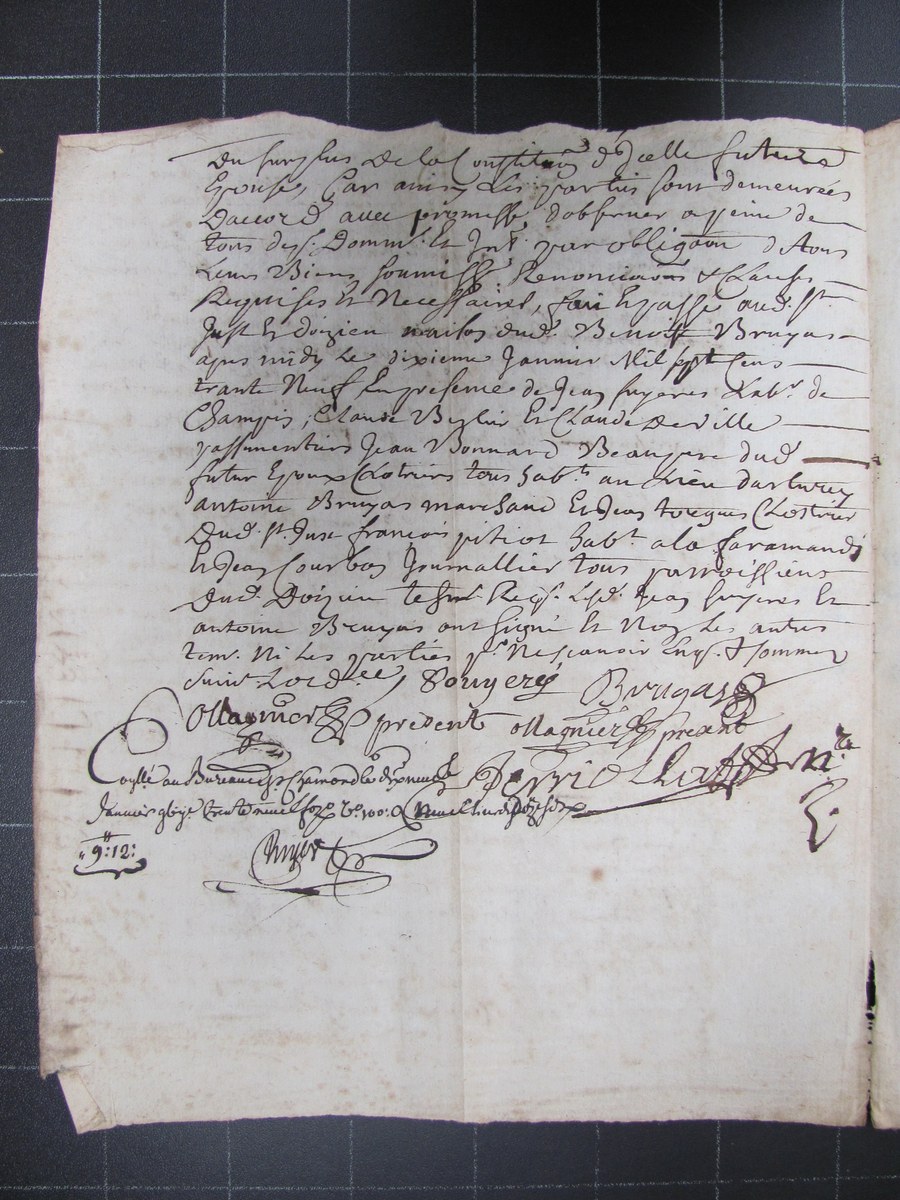 Du surplus de la Constituõn d'jcelle future
Epouse, Car ainsy Les parties sont demeurées
Daccord avec promesse d'observer a peine de
tous desp. Domm. Et Int. par obligaõn d'tous
Leurs Biens soumiss. Renonciaõns & Clauses
Requises Et Necessaires, fait Et passé aud. St.
Just En doizieu maison dud. Benoit Bruyas
apres midy Le dixieme Janvier Mil sept Cens
trante Neuf En presence de Jean Labr. de
Champis, Claude Et Claude Deville
passementiers Jean Bonnard Beaupere dud.
futur Epoux Clotrier tous habts. au Lieu
antoine Bruyas marchand Et Jean Clotrier
Dud. St. Just françois pitiot habt. a la faramand
Et Jean Courbon Journallier tous parroissiens
Dud. Doizieu Req. Lesd. Jean Et
antoine Bruyas ont signé Et Non Les autres
tem. Ni Les parties pr. Ne scavoir Enq. & sommes
suivt. Lord.ce
Ollagnier present Ollagnier present
au Bureau de St Chamond Le
Janvier trente neuf fo. 100.
9: 12: